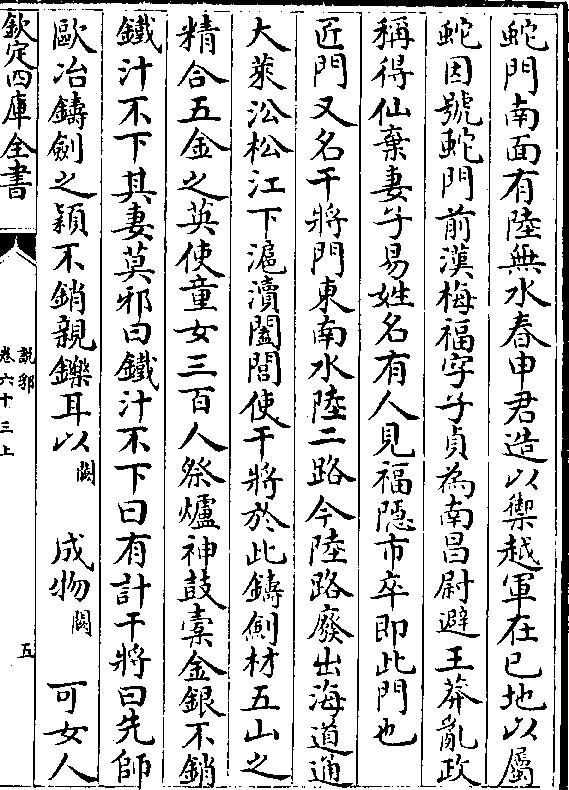 蛇門南面有陸無水春申君造以禦越軍在巳地以屬
蛇因號蛇門前漢梅福字子貞為南昌尉避王莽亂政
稱得仙棄妻子易姓名有人見福隱市卒即此門也
匠門又名干將門東南水陸二路今陸路廢出海道通
大萊沿松江下滬瀆闔閭使干將於此鑄劍材五山之
精合五金之英使童女三百人祭爐神鼓橐金銀不銷
鐵汁不下其妻莫邪曰鐵汁不下曰有計干將曰先師
歐冶鑄劍之穎不銷親鑠耳以闕成物闕可女人
欽定四庫全書
說郛
卷六十三上
五